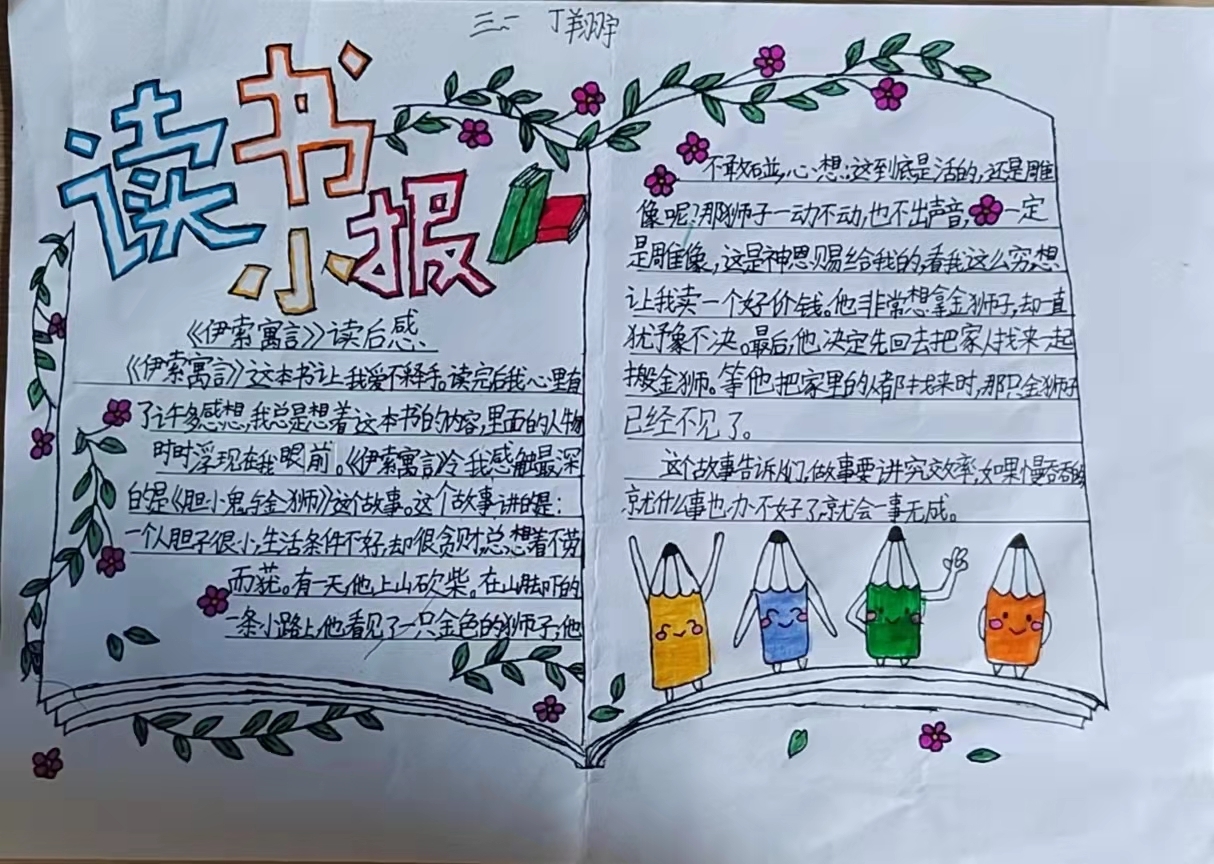 三二 丁翔宇
读书
小报
《伊索寓言》读后感
《伊索寓言》这本书让我爱不释手。读完后我心里有
了许多感想,我总是想着这本书的内容,里面的人物
时时浮现在我眼前。《伊索寓言》令我感触最深
的是《胆小鬼与金狮》这个故事。这个故事讲的是:
一个人胆子很小,生活条件不好,却很贪财,总想着不劳
而获。有一天,他上山砍柴。在山脚下的
一条小路上,他看见了一只金色的狮子,他
不敢碰,心想:这到底是活的,还是雕
像呢?那狮子一动不动,也不出声音,一定
是雕像,这是神恩赐给我的,看我这么穷,想
让我卖一个好价钱。他非常想拿金狮子,却一直
犹予象不决。最后,他决定先回去把家人找来一起
搬金狮。等他把家里的人都找来时,那只金狮子
已经不见了。
这个故事告诉人们,做事要讲究效率,如果慢吞吞的
就什么事也办不好了,就会一事无成。